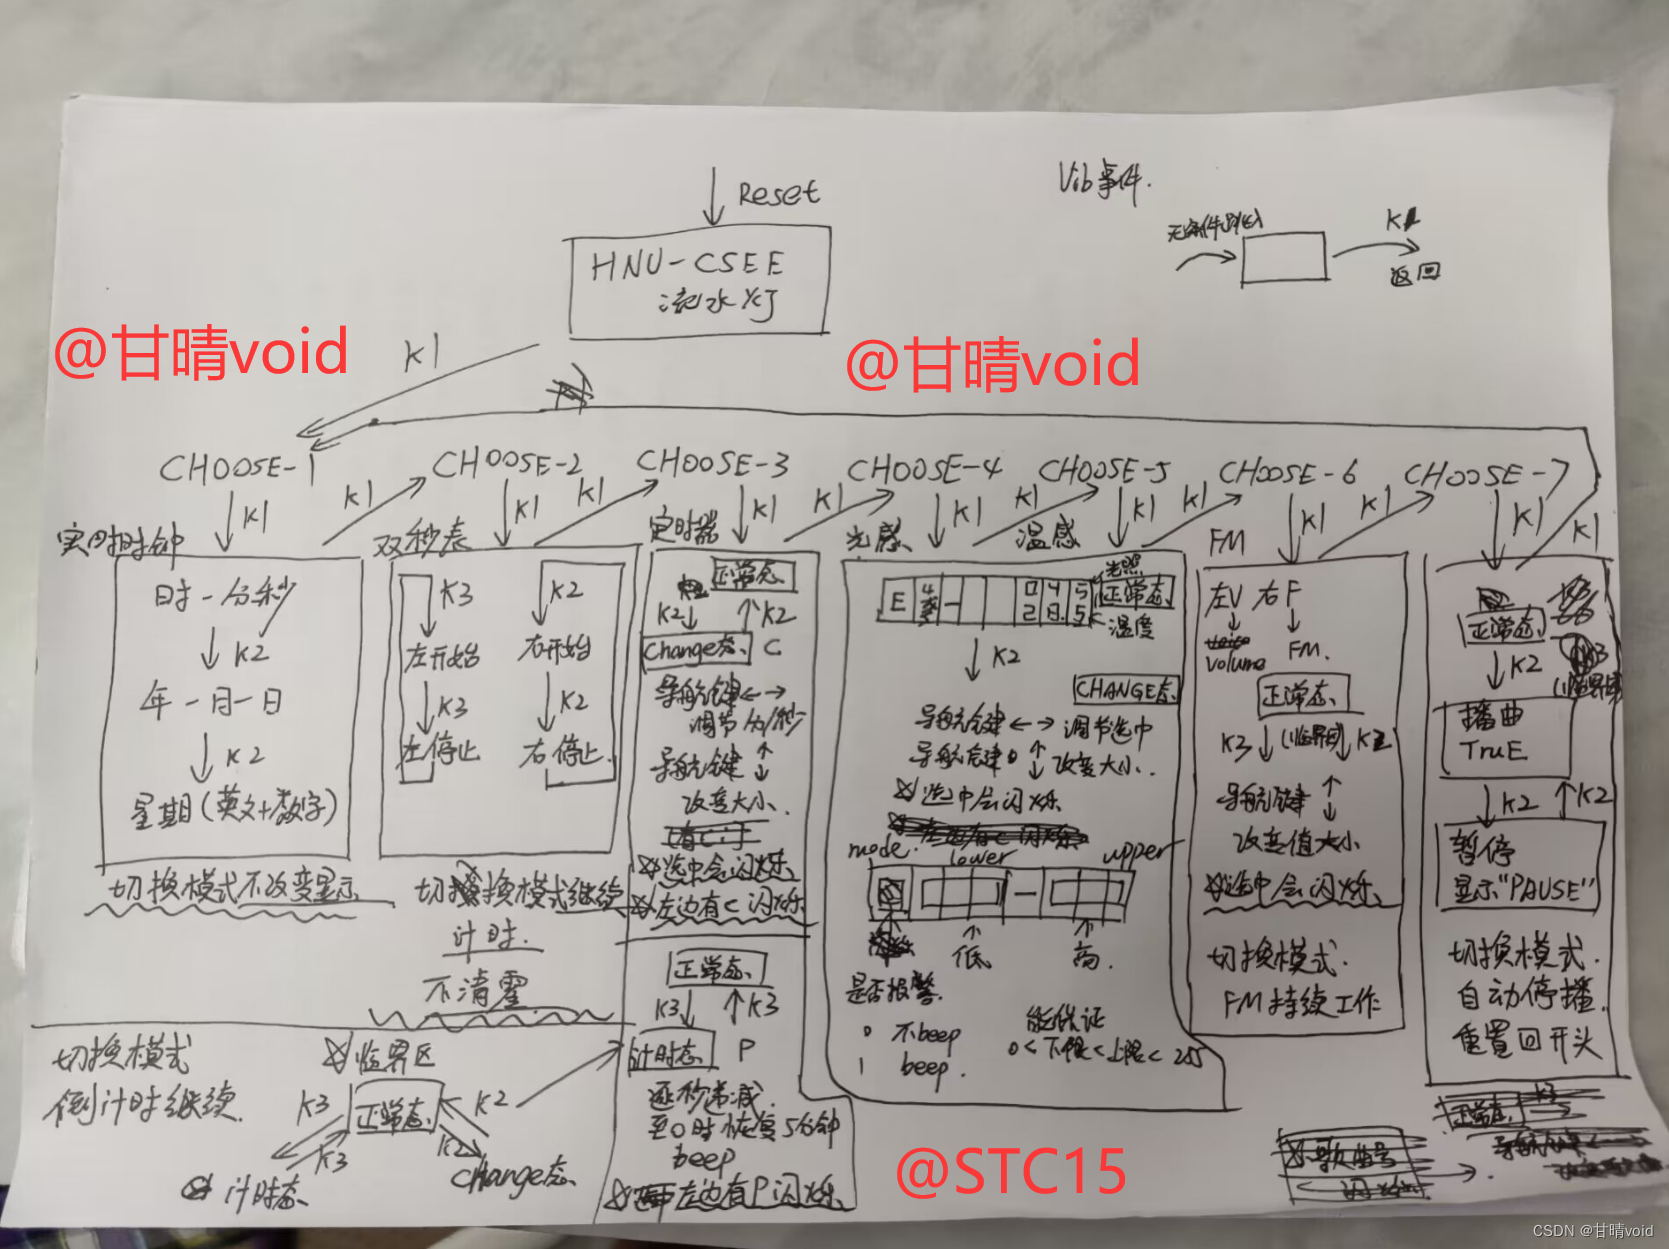 Reset
HNU-CSEE
流水灯
Vib事件.
返回
@甘晴void
@甘晴void
K1
CHOOSE-1
CHOOSE-2
CHOOSE-3
CHOOSE-4
CHOOSE-5
CHOOSE-6
CHOOSE-7
K1
K1
K1
K1
K1
K1
K1
K1
K1
K1
K1
K1
K1
K1
实用时钟
时-分-秒
K2
年-月-日
K2
星期(英文+数字)
切换模式不改变显示
双秒表
K3
左开始
K3
左停止
K2
右开始
K2
右停止.
切换模式继续
计时.
不清零
定时器
正常态
K2
K2
Change态
C
导航键←→
调节分/秒
导航键↑↓
改变大小.
选中会闪烁
左边有C闪烁
正常态
K3
K3
计时态
P
逐秒递减.
至0时恢复5分钟
beep
左边有P闪烁
切换模式
倒计时继续.
临界区
正常态
K3
K3
K2
K2
计时态
Change态
光感
温感
E
4
-
0 4 5
2 8. 5
光照
正常态
温度
K2
CHANGE态
导航键←→ 调节选中
导航键 ↑↓ 改变大小.
选中会闪烁
mode.
lower
upper
-
低
高.
是否报警.
0 不beep
1 beep.
能保证
0<下限<上限<255
FM
左V 右F
volume
FM.
正常态
K3
(临界区)
K2
导航键 ↑↓
改变值大小
选中会闪烁
切换模式.
FM持续工作
正常态
K2
K3
(临界区)
播曲
TruE
K2
K2
暂停
显示"PAUSE"
切换模式.
自动停播.
重置回开头
正常态
K3
@STC15
CSDN @甘晴void